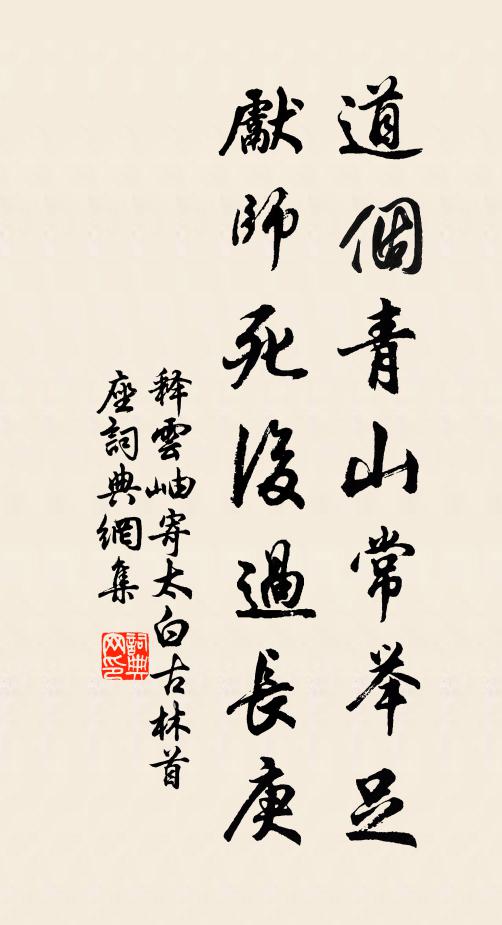 道個青山常举足
獻師死後過長庚
释雲岫寄太白古林首
座詞典網集
詞典
网印